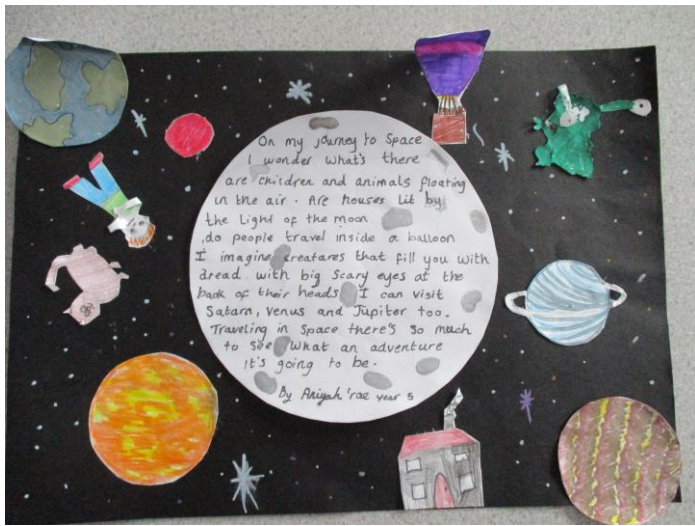 On my journey to Space
I wonder what's there
are children and animals floating
in the air. Are houses lit by
the light of the moon
do people travel inside a balloon
I imagine creatures that fill you with
dread with big scary eyes at the
back of their heads I can visit
Satarn, venus and Jupiter too.
Traveling in Space there's so much
to see What an adventure
it's going to be.
By 'rae year 5